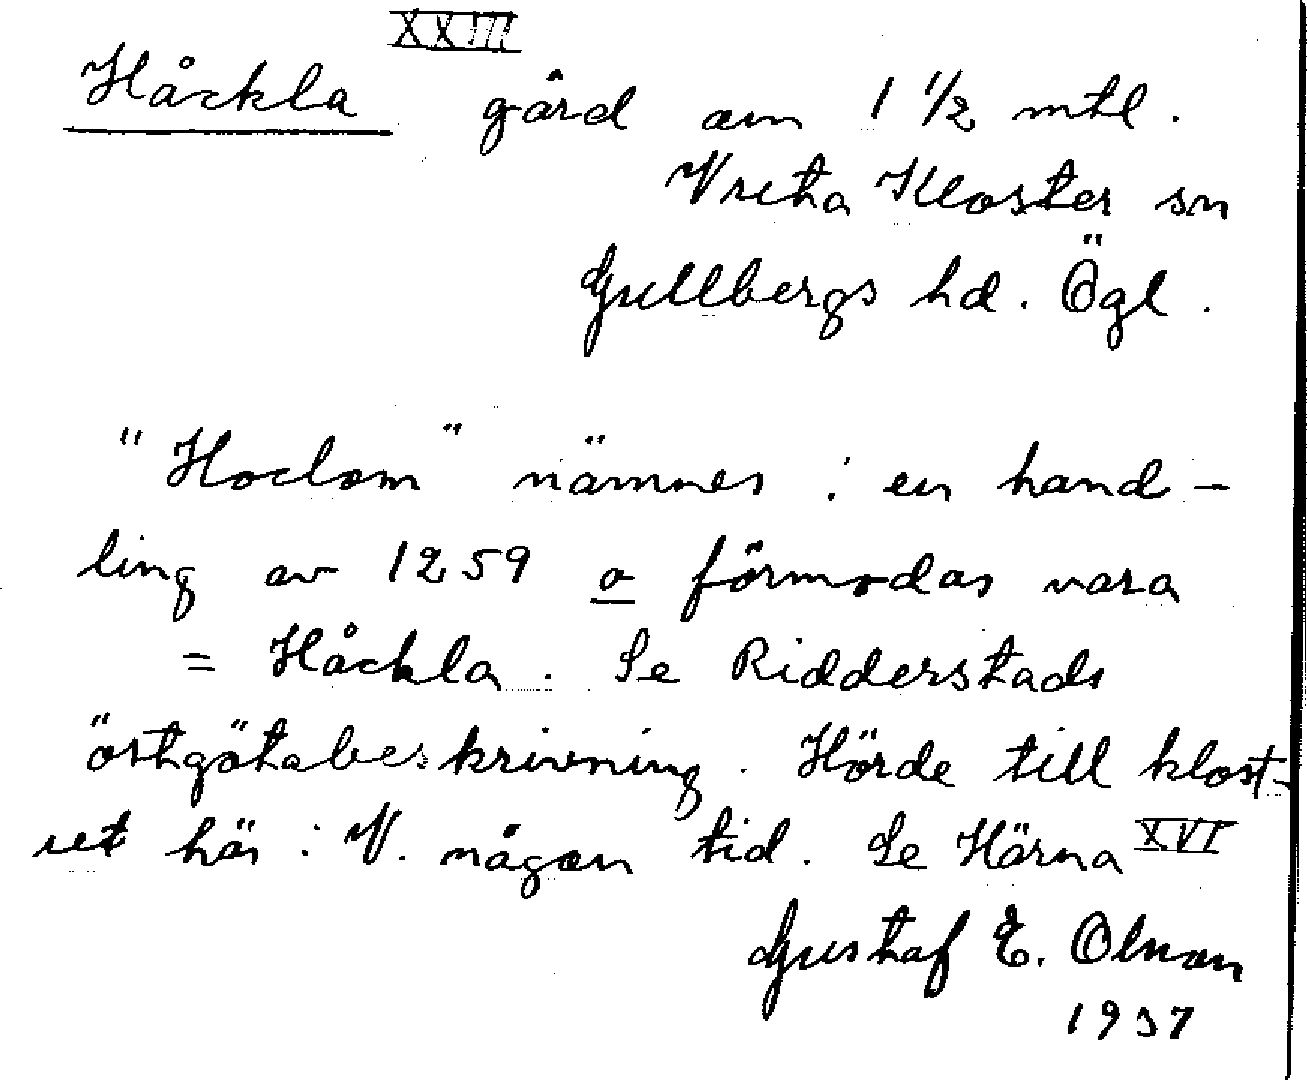 XXIII
Håckla gård om 1 1/2 mtl.
Vreta Kloster sn
Gullbergs hd. Ögl.
"Hoclom" nämnes i en hand-
ling av 1259 o förmodas vara
= Håckla. Se Ridderstads
östgötabeskrivning. Hörde till klost-
ret här i V. någon tid. Se Härna XVI
Gustaf E. Olman
1937